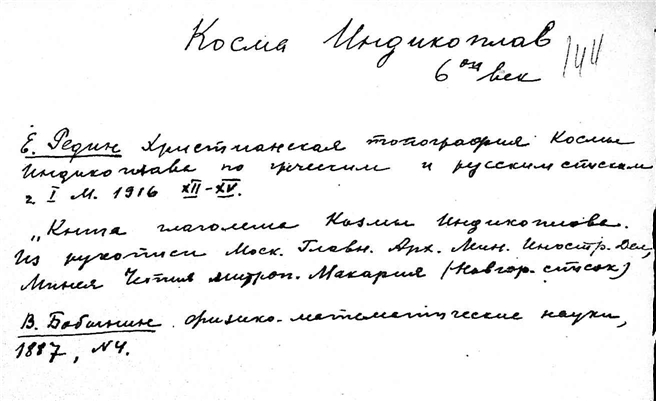 Косма Индикоплав
6ой век
144
Е. Редин Христианская топография Космы
Индикоплава по греческим и русским спискам
ч I М. 1916 XII-XV.
„Книга глаголема Козмы Индикоплова.
Из рукописи Моск. Главн. Арх. Мин. Иностр. Дел,
Минея Четия митроп. Макария (Новгор. список)
В. Бобынин физико-математические науки,
1887, N4.